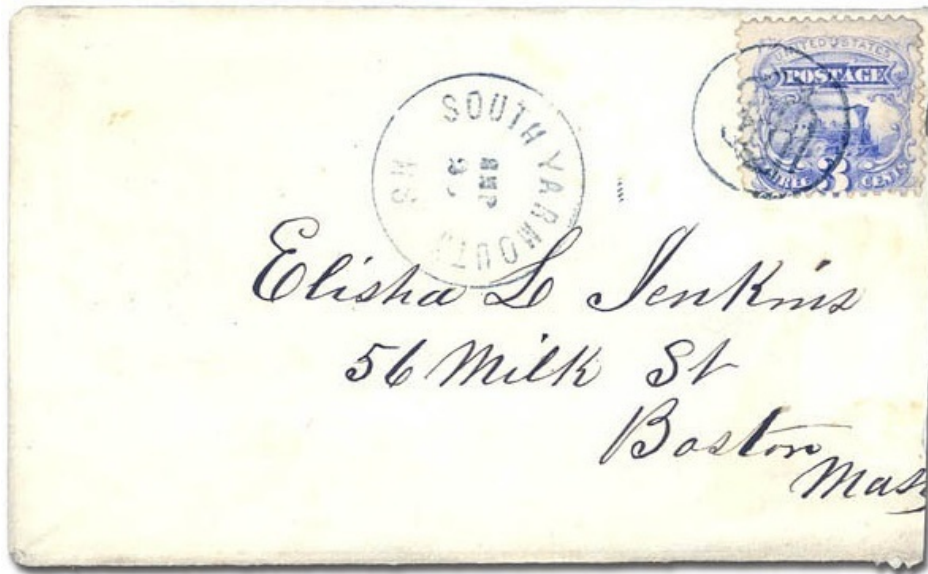 UNITED STATES
POSTAGE
THREE 3 CENTS
SOUTH YARMOUTH MS
Elisha L Jenkins
56 Milk St
Boston
Mass